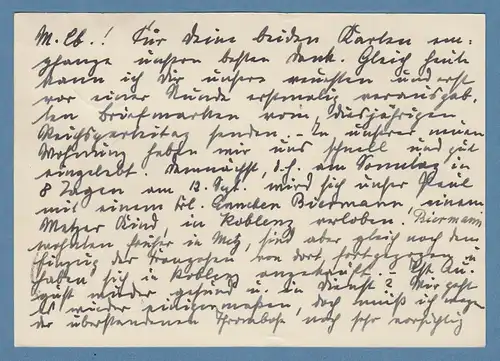 M. Lb.! Für Deine beiden Karten em=
pfange unsern besten Dank. Gleich heute
kann ich Dir unsere neuesten und erst
vor einer Stunde erstmalig verausgab=
ten Briefmarken vom diesjährigen
Reichsparteitag senden. – In unserer neuen
Wohnung haben wir uns schnell und gut
eingelebt. Demnächst, d.h. am Sonntag in
8 Tagen am 13. Sept. wird sich unser Paul
mit einem Frl. Lenchen Biermann einem
Metzer Kind, in Koblenz verloben. Biermanns
wohnten früher in Metz, sind aber gleich nach dem
Einzug der Franzosen von dort fortgezogen u.
haben sich in Koblenz angekauft. – Ist Au=
gust wieder gesund u. im Dienst? Mir geht
es wieder einigermaßen, doch muß ich wegen
der überstandenen Thrombose noch sehr vorsichtig